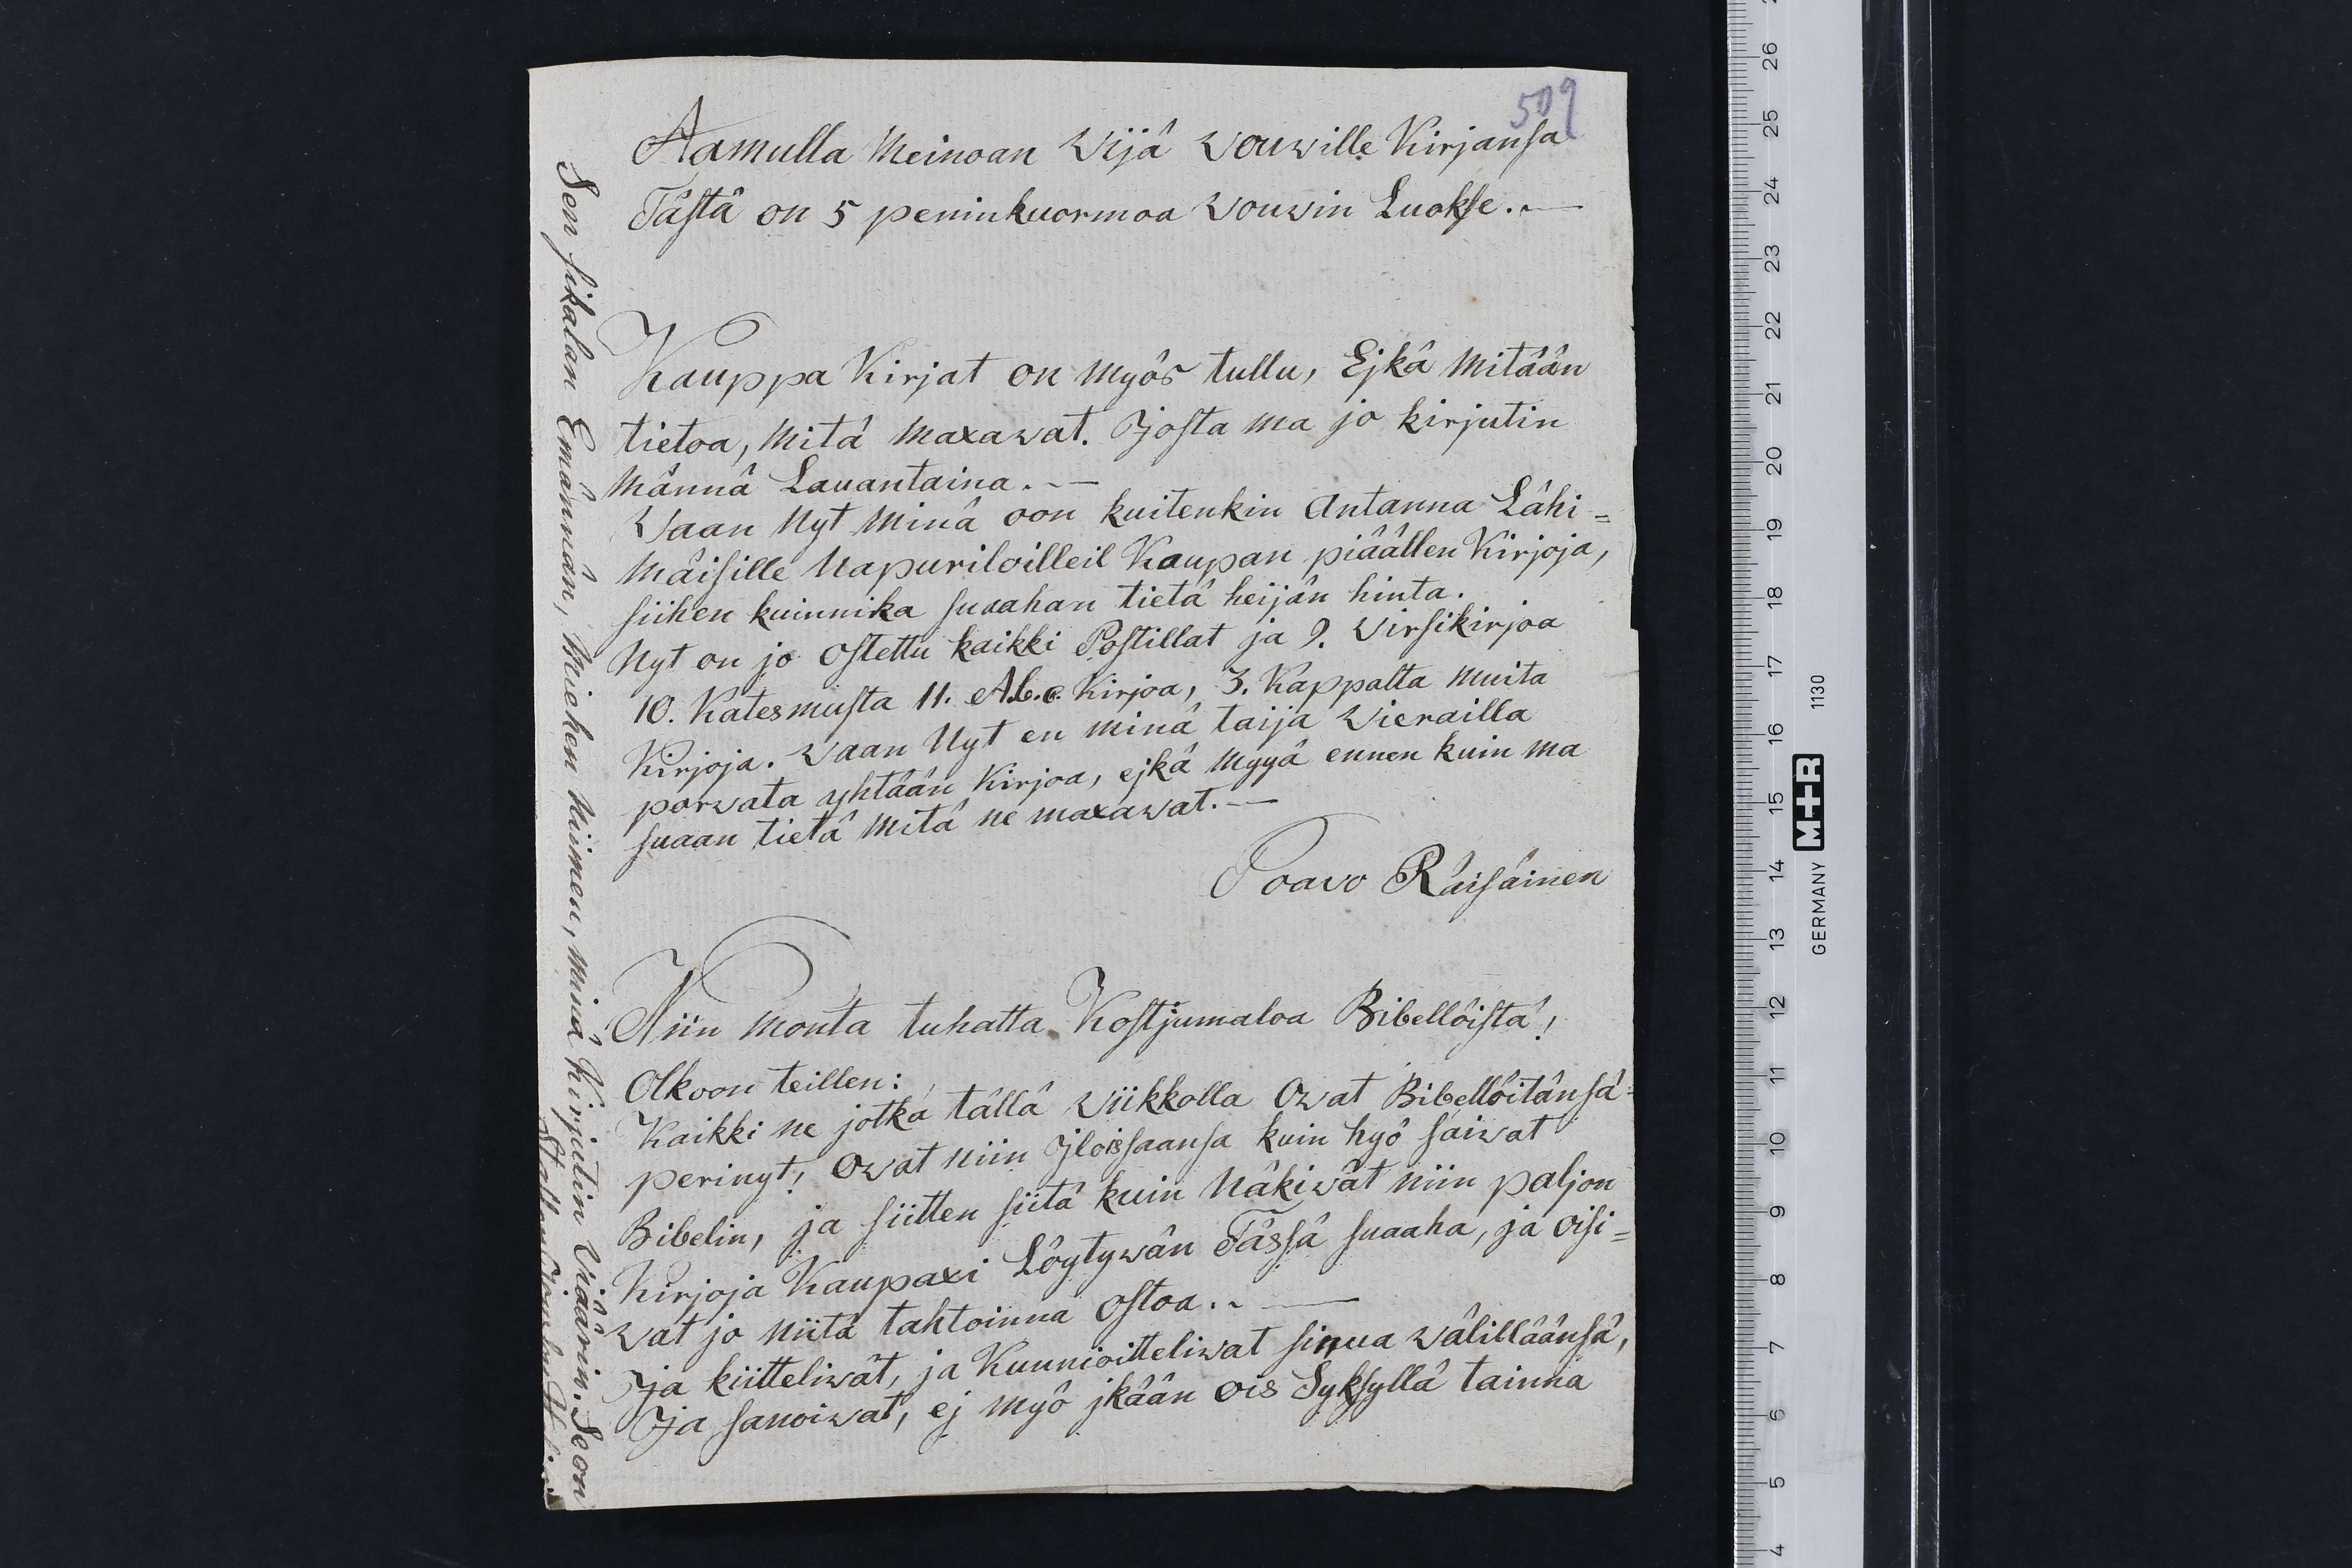 509
Aamulla Meinoan Wijä Wouwille Kirjansa
Tästä on 5 peninkuormoa Wouwin Luokse.
Kauppa Kirjat on Myös tullu, Ejkä Mitään
tietoa, Mitä Maxawat. Josta ma jo kirjutin
Männä Lauantaina.
Waan Nyt Minä oon kuitenkin Antanna Lähi=
Mäisille Napuriloilleil Kaupan piäällen Kirjoja,
siihen kuinnika suaahan tietä heijän hinta.
Nyt on jo Ostettu kaikki Postillat ja 9. Wirsikirjoa
10. Katesmusta 11. A.b.c. Kirjoa, 3. Kappalta Muita
Kirjoja. Waan Nyt en minä taija Wierailla
porwata yhtään Kirjoa, ejkä Myyä ennen kuin ma
suaan tietä Mitä ne maxawat.
Poavo Räisäinen
Niin Monta tuhatta Kostjumaloa Bibellöistä!
Olkoon teillen:
Kaikki ne jotka tällä Wiikkolla Owat Bibellöitänsä
perinyt! Owat niin Jloissaansa kuin hyö saiwat
Bibelin, ja siitten siitä kuin Näkiwät niin paljon
Kirjoja Kaupaxi Löytywän Tässä suaaha, ja Oisi=
wat jo Niitä tahtoinna Ostoa.
Ja kiitteliwät, ja Kunnioitteliwat sinua Wälilläänsä,
Ja sanoiwat, ej Myö jkään ois Syksyllä tainna
Sen sikalan Emännän, Miehen Niimen, Minä Kirjutin Wiäärin. Se on